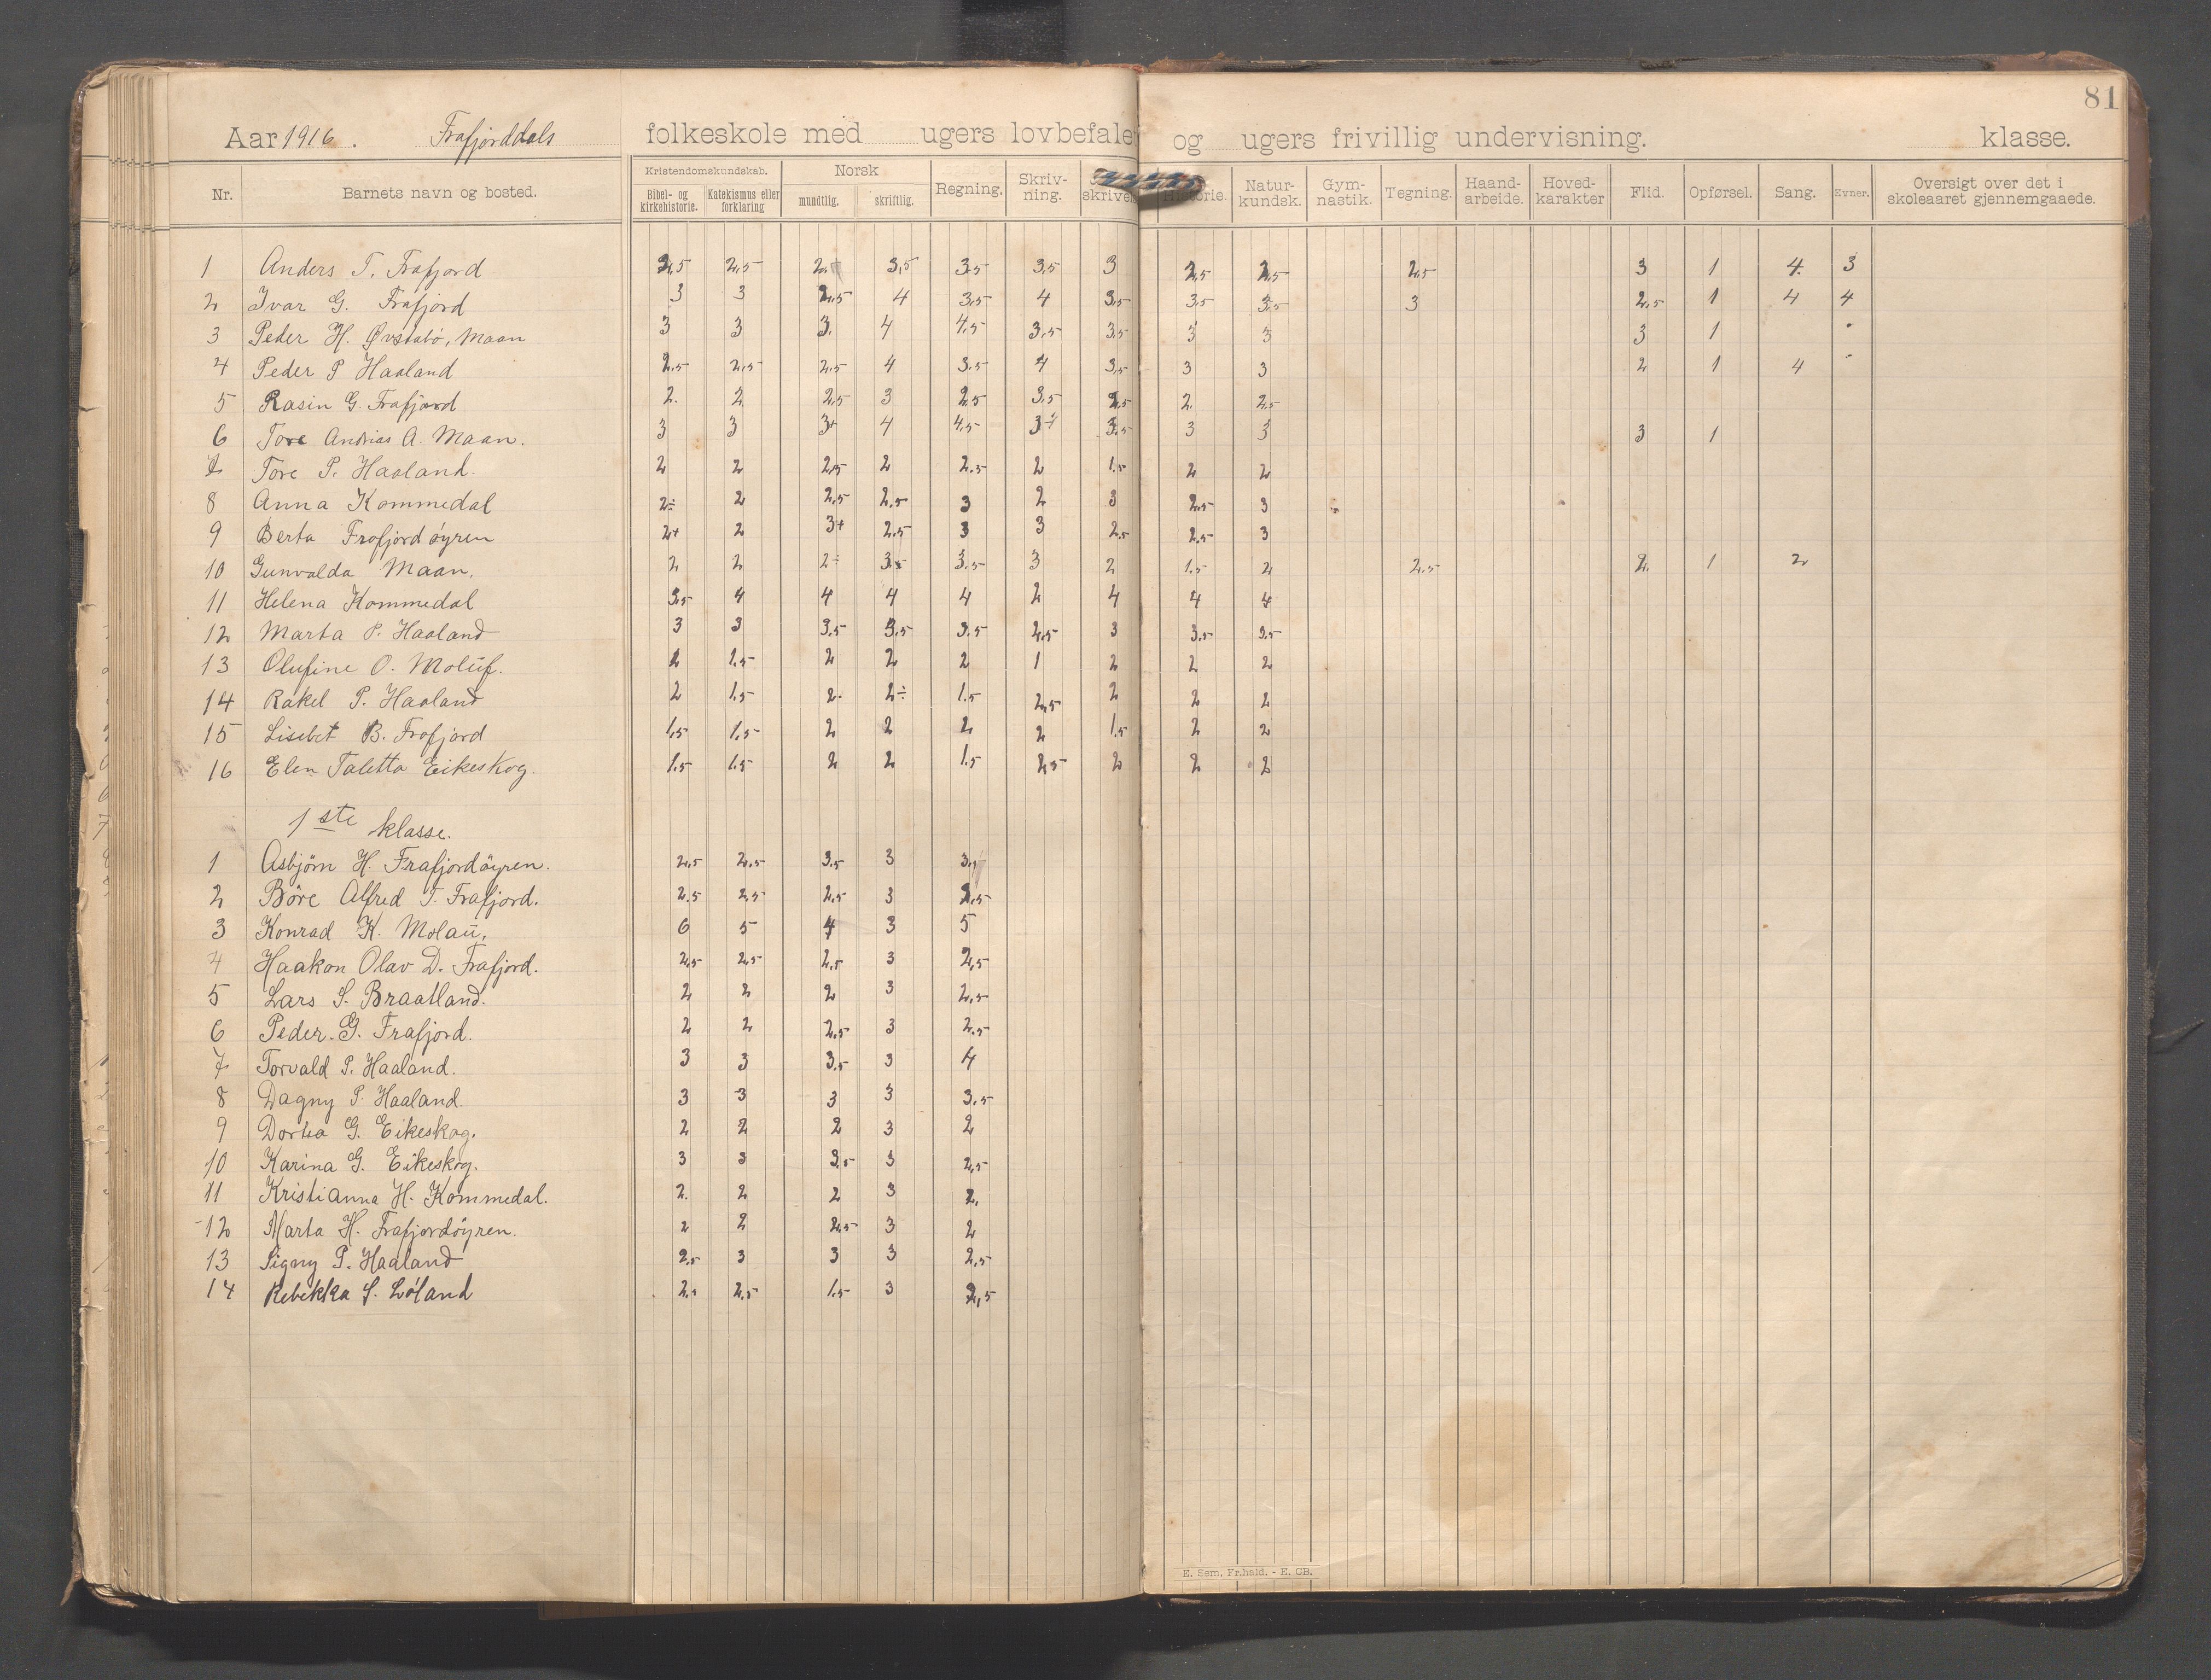 81
Aar 1916. Frafjorddals folkeskole med ugers lovbefale og ugers frivillig undervisning. klasse.
Nr. Barnets navn og bosted. Kristendomskundskab. Bibel- og kirkehistorie. Katekismus eller forklaring Norsk mundtlig. skriftlig. Regning. Skriv-ning. skrivels Historie. Natur-kundsk. Gym-nastik. Tegning. Haand-arbeide. Hoved-karakter Flid. Opførsel. Sang. Evner. Oversigt over det i skoleaaret gjennemgaaede.
1 Anders T. Frafjord 2,5 2,5 2+ 3,5 3,5 3,5 3 2,5 2,5 2,5 3 1 4. 3
2 Ivar G. Frafjord 3 3 2,5 4 3,5 4 3,5 3,5 3,5 3 2,5 1 4 4
3 Peder H. Øvstabø, Maan 3 3 3. 4 4,5 3,5 3,5 3 3 3 1
4 Peder P Haaland 2,5 2,5 2,5 4 3,5 4 3,5 3 3 2 1 4
5 Rasin G. Frafjord 2. 2 2,5 3 2,5 3,5 2,5 2. 2,5
6 Tore Andrias A. Maan. 3 3 3+ 4 4,5 3+ 3,5 3 3 3 1
7 Tore P. Haaland. 2 2 2,5 2 2,5 2 1,5 2 2
8 Anna Kommedal 2÷ 2 2,5 2,5 3 2 3 2,5 3
9 Berta Frafjordøyren 2+ 2 3+ 2,5 3 3 2,5 2,5 3
10 Gunvalda Maan. 2 2 2÷ 3,5 3,5 3 2 1,5 2 2,5 2. 1 2
11 Helena Kommedal 3,5 4 4 4 4 2 4 4 4
12 Marta P. Haaland 3 3 3,5 3,5 3,5 2,5 3 3,5 3,5
13 Olufine O. Molüf. 2 1,5 2 2 2 1 2 2 2
14 Rakel P. Haaland 2 1,5 2. 2÷ 1,5 2,5 2 2 2
15 Lisebet B. Frafjord 1,5 1,5 2 2 2 2 1,5 2 2
16 Elen Taletta Eikeskog. 1,5 1,5 2 2 1,5 2,5 2 2 2
1ste klasse.
1 Asbjörn H. Frafjordöyren. 2,5 2,5 3,5 3 3,
2 Böre Alfred T. Frafjord. 2,5 2,5 2,5 3 2,5
3 Konrad K. Molaü. 6 5 4 3 5
4 Haakon Olav D. Frafjord. 2,5 2,5 2,5 3 2,5
5 Lars S. Braatland. 2 2 2 3 2,5
6 Peder. G. Frafjord. 2 2 2,5 3 2,5
7 Torvald P. Haaland. 3 3 3,5 3 4
8 Dagny P. Haaland. 3 3 3 3 3,5
9 Dortea G. Eikeskog. 2 2 2 3 2
10 Karina G. Eikeskog. 3 3 3,5 3 2,5
11 Kristianna H. Kommedal. 2. 2 2 3 2.
12 Marta H. Frafjordöyren. 2 2 2,5 3 2
13 Signy P. Haaland 2,5 3 3 3 2,5
14 Rebekka S. Løland 2,5 2,5 1,5 3 2,5
E. Sem, Fr.hald. - E. CB.